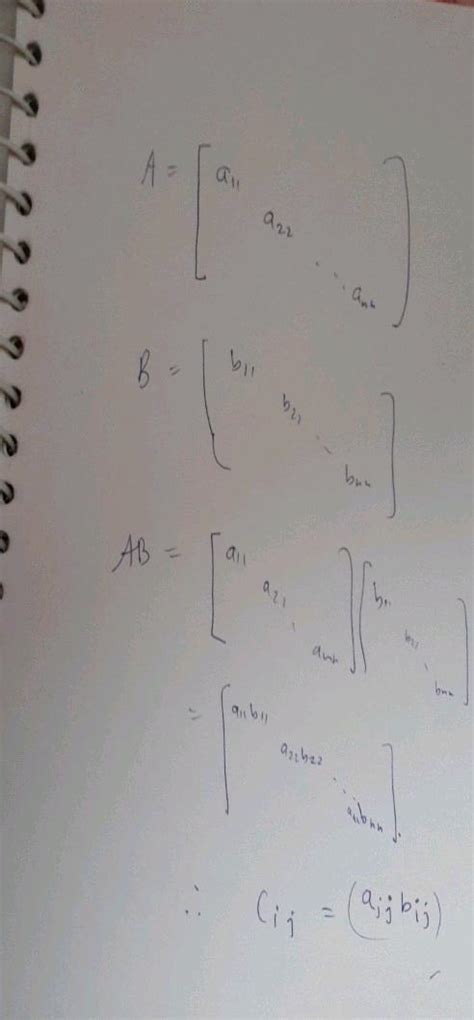 A = [ a₁₁
a₂₂
⋱ aₙₙ ]
B = [ b₁₁
b₂₂
⋱
bₙₙ ]
AB = [ a₁₁ a₂₂ ⋱ aₙₙ ] [ b₁₁ b₂₂ ⋱ bₙₙ ]
= [ a₁₁b₁₁
a₂₂b₂₂
⋱
aₙₙbₙₙ ]
∴ Cᵢⱼ = (aᵢⱼ bᵢⱼ)